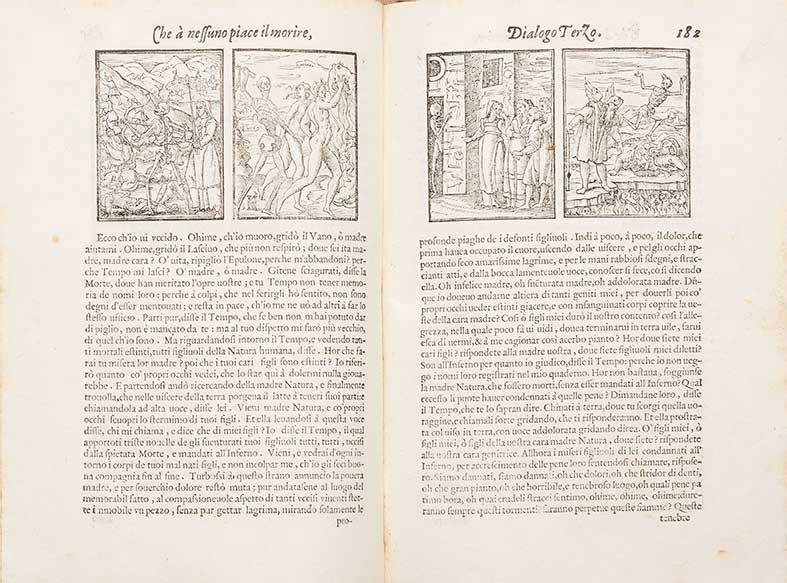 Che à nessuno piace il morire,
Ecco ch'io ui vccido. Ohime, ch'io muoro, gridò il Vano, ò madre
aiutami. Ohime, gridò il Lasciuo, che più non respirò; doue sei ita ma-
dre, madre cara? O' uita, ripigliò l'Epulone, perche m'abbandoni? per-
che Tempo mi lasci? O' madre, ò madre. Gitene sciagurati, disse la
Morte, doue han meritato l'opre uostre; e tu Tempo non tener memo-
ria de nomi loro: perche à colpi, che nel ferirgli hò sentito, non sono
degni d'esser mentouati; e stà in pace, ch'io me ne uò ad altri à far lo
stesso ufficio. Parti pur, disse il Tempo, che se ben non m'hai potuto dar
di piglio, non è mancato da te: ma al tuo dispetto mi farò più vecchio,
di quel ch'io sono. Ma riguardandosi intorno il Tempo, e vedendo tan-
ti mortali estinti, tutti figliuoli della Natura humana, disse. Hor che fa-
rai tu misera lor madre? poi che i tuoi cari figli sono estinti? Io riferi-
rò quanto co' propri occhi vedei, che lo star quì à dolermi nulla gioua-
rebbe. E partendosi andò ricercando della madre Natura, e finalmente
trouolla, che nelle uiscere della terra porgeua il latte à teneri suoi parti:
chiamandola ad alta uoce, disse lei. Vieni madre Natura, e co' propri
occhi scuopri lo sterminio di tuoi figli. Et ella leuandosi à questa voce
disse, chi mi chiama, e dice che di miei figli? Io disse il Tempo, il qual
apportoti triste nouelle de gli suenturati tuoi figliuoli tutti, tutti, uccisi
dalla spietata Morte, e mandati all'Inferno. Vieni, e vedrai d'ogni in-
torno i corpi de tuoi mal nati figli, e non incolpar me, ch'io gli feci buo-
na compagnia sin al fine. Turbossi à questo strano annuncio la pouera
madre, e per souerchio dolore restò muta; pur andatasene al luogo del
memorabil fatto, al compassioneuole aspetto di tanti vccisi viuenti stet-
te immobile vn pezzo, senza pur gettar lagrima, mirando solamente le
pro-
Dialogo Terzo. 182
profonde piaghe de i defonti figliuoli. Indi à poco, à poco, il dolor, che
prima hauea occupato il cuore, uscendo dalle uiscere, e pel gli occhi ap-
portando seco amarissime lagrime, e per le mani rabbiosi sdegni, e strac-
cianti atti, e dalla bocca lamenteuole uoce, conoscer si fece, cosi dicendo
ella. Oh infelice madre, oh sfliturata madre, oh addolorata madre. Dũ-
que io doueuo andarne altiera di tanti geniti miei, per douerli poi co'
propri occhi ueder estinti giacere, e con insanguinati corpi coprire la ue-
ste della cara madre? Cosi ò figli miei durò il uostro contento? cosi l'alle-
grezza, nella quale poco fà ui uidi, douea terminarui in terra uile, farui
esca di uermi, & à me cagionar cosi acerbo pianto? Hor doue sete miei
cari figli? rispondete alla madre uostra, doue siete figliuoli miei diletti?
Son all'Inferno per quanto io giudico, disse il Tempo: perche io non ueg-
go i nomi loro registrati nel mio quaderno. Hor non bastaua, soggiunse
la madre Natura, che fossero morti, senza esser mandati all'Inferno? Qual
eccesso li puote hauer condennati à quelle pene? Dimandane loro, disse
il Tempo, che te lo sapran dire. Chinati à terra, doue tu scorgi quella uo-
raggine, e chiamali forte gridando, che ti risponderanno. Et ella prostra-
ta col uiso in terra, con uoce addolorata gridando dicea. O' figli miei, ò
figli miei, ò figli della uostra cara madre Natura, doue siete? rispondete
alla uostra cara genitrice. Allhora i miseri figliuoli di lei condannati all'
Inferno, per accrescimento delle pene loro sentendosi chiamare, rispose-
ro. Siamo dannati, siamo dannati, oh che dolori, oh che stridor di denti,
oh che gran pianto, oh che horribile, e tenebroso luogo, oh quali pene pa-
timo bora, oh quai crudeli stracci sentimo, ohime, ohime, ohime: dure-
ranno sempre questi tormenti? saranno perpetue queste fiamme? Queste
tenebre